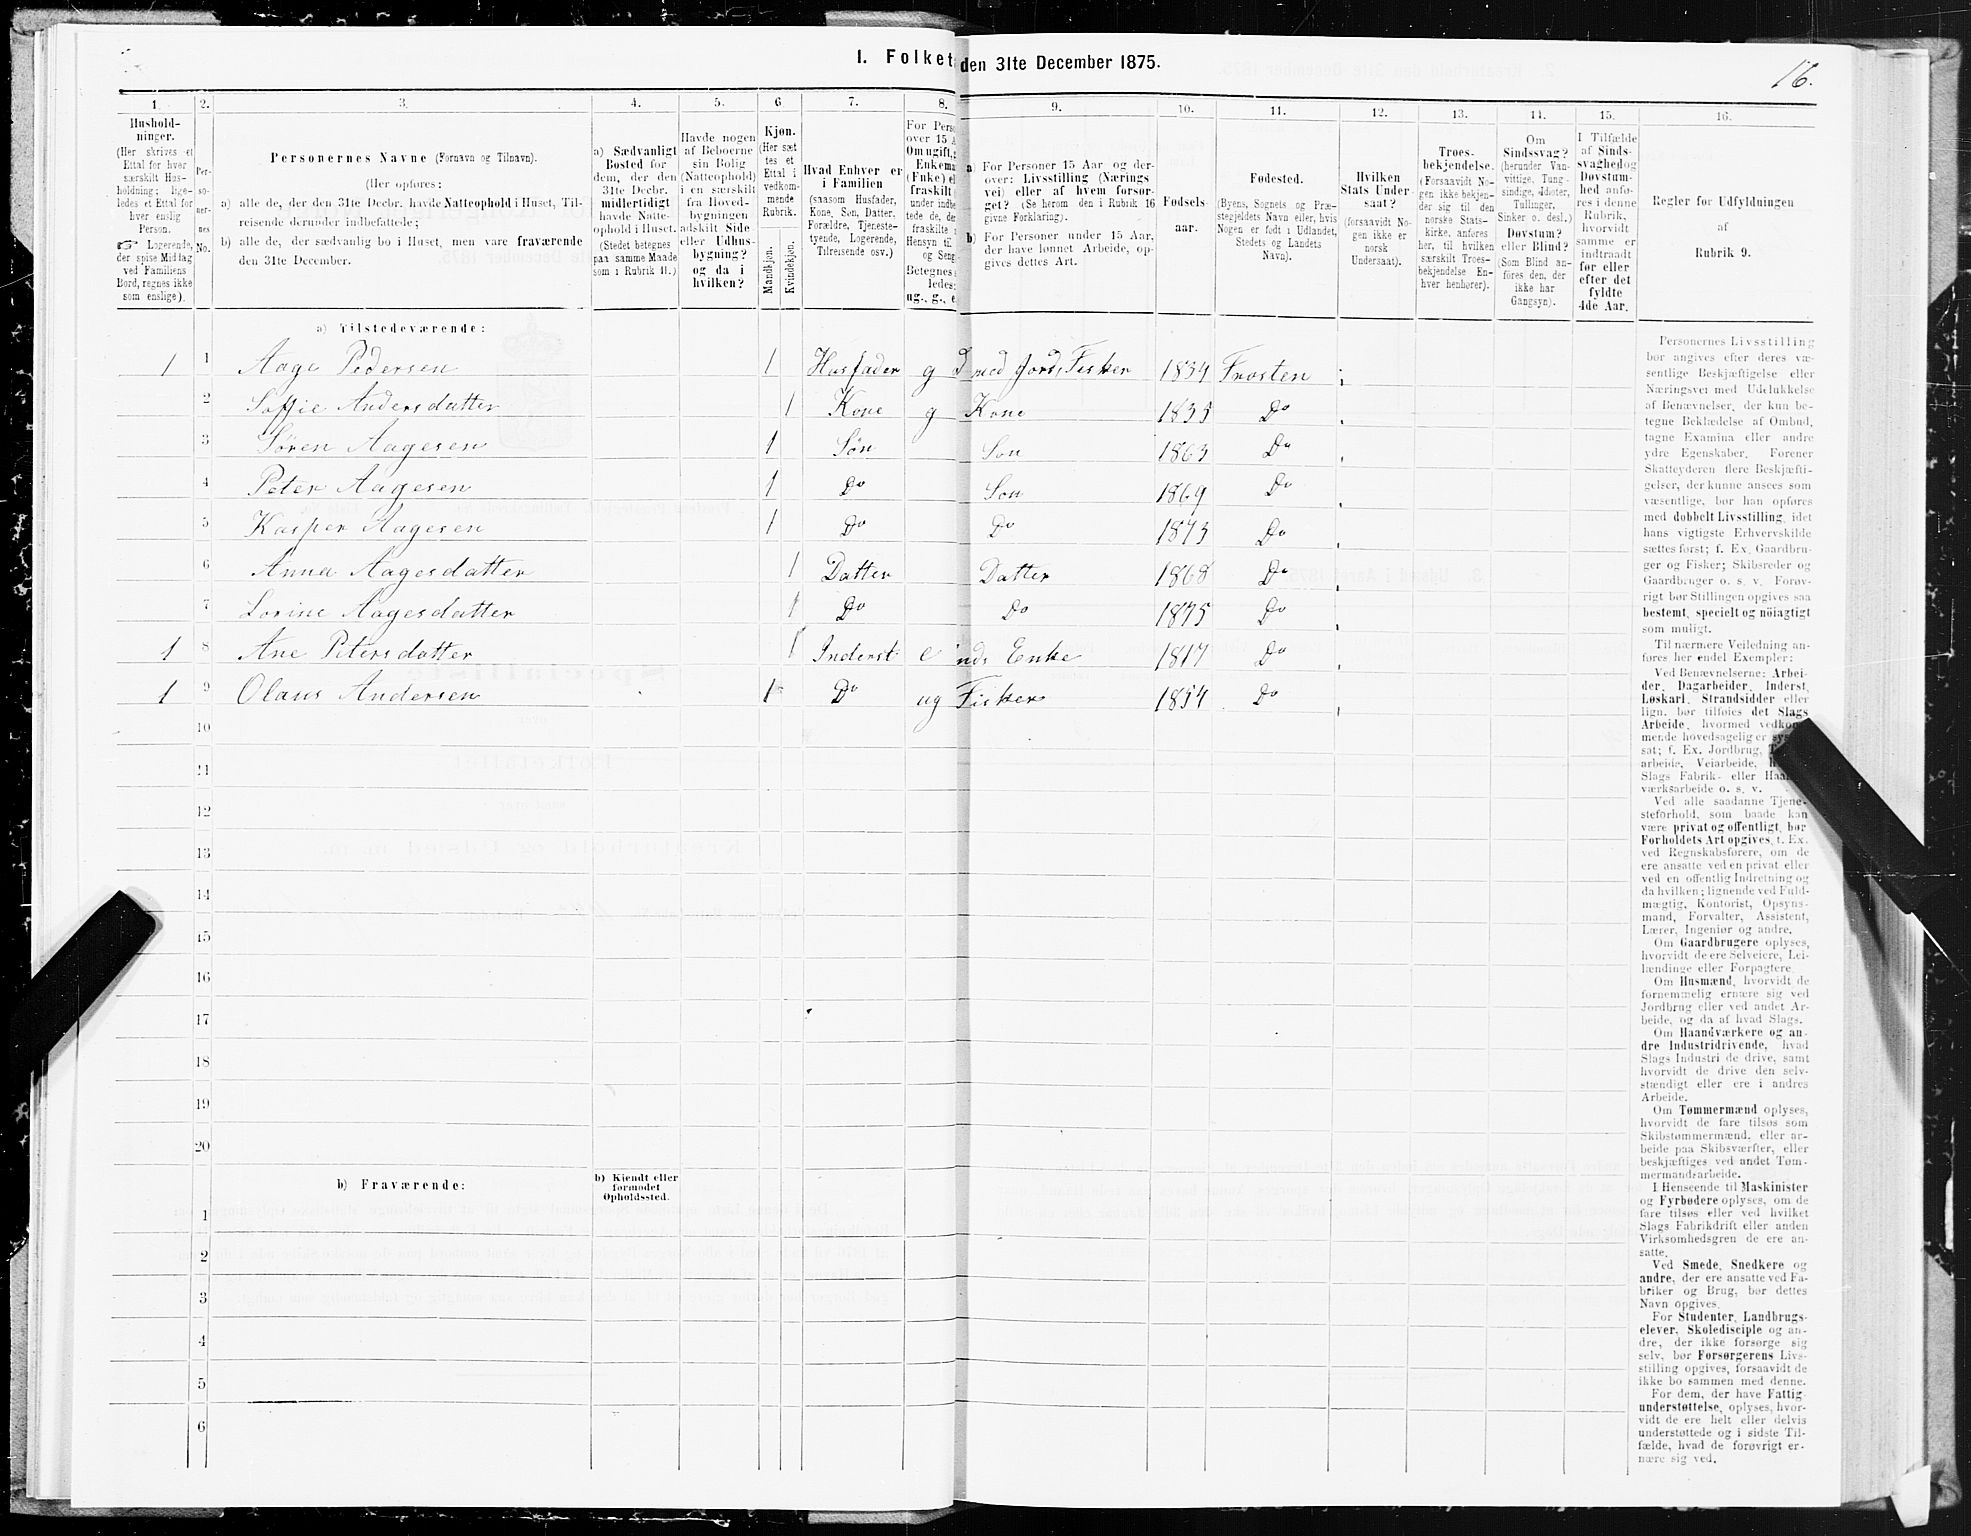 I. Folket den 31te December 1875.
16.
1. 2. 3. 4. 5. 6 7. 8. 9. 10. 11. 12. 13. 14. 15. 16.
Hushold-
ninger.
(Her skrives et
Ettal for hver
særskilt Hus-
holdning; lige-
ledes et Ettal for
hver enslig
Person.
☞ Logerende,
der spise Middag
ved Familiens
Bord, regnes ikke
som enslige).
Per-
so-
ner-
nes
No.
Personernes Navne (Fornavn og Tilnavn).
(Her opføres:
a) alle de, der den 31te Decbr. havde Natteophold i Huset, Til-
reisende derunder indbefattede;
b) alle de, der sædvanlig bo i Huset, men vare fraværende
den 31te December.
a) Sædvanligt
Bosted for
dem, der den
31te Decbr.
midlertidigt
havde Natte-
ophold i Huset.
(Stedet betegnes
paa samme Maade
som i Rubrik 11.)
Havde nogen
af Beboerne
sin Bolig
(Natteophold)
i en særskilt
fra Hoved-
bygningen
adskilt Side
eller Udhus-
bygning?
og da i
hvilken?
Kjøn.
(Her sæt
tes et
Ettal i
vedkom-
mende
Rubrik.
Mandkjøn.
Kvindekjøn.
Hvad Enhver er
i Familien
(saasom Husfader,
Kone, Søn, Datter,
Forældre, Tjeneste-
tyende, Logerende,
Tilreisende osv.)
For Pers
over 15 A
Om ugift,
Enkema
(Enke) el
fraskilt
under indbe
tede de, der
fraskilte
Hensyn til
og Seng
Betegnes
ledes:
ug., g., e
a) For Personer 15 Aar og der-
over: Livsstilling (Nærings
vei) eller af hvem forsør-
get? (Se herom den i Rubrik 16
givne Forklaring).
b) For Personer under 15 Aar,
der have lønnet Arbeide, op-
gives dettes Art.
Fødsels-
aar.
Fødested.
(Byens, Sognets og Præ-
stegjeldets Navn eller, hvis
Nogen er født i Udlandet,
Stedets og Landets
Navn).
Hvilken
Stats Under-
saat?
(forsaavidt No-
gen ikke er
norsk
Undersaat).
Troes-
bekjendelse.
(Forsaavidt No-
gen ikke bekjen-
der sig til den
norske Stats-
kirke, anføres
her, til hvilken
særskilt Troes-
bekjendelse En-
hver henhører).
Om
Sindssvag?
(herunder Van-
vittige, Tung-
sindige, Idioter,
Tullinger,
Sinker o. desl.)
Døvstum?
eller Blind?
(Som Blind an-
føres den, der
ikke har
Gangsyn).
I Tilfælde
af Sinds-
svaghed og
Døvstum-
hed anfø-
res i denne
Rubrik,
hvorvidt
samme er
indtraadt
før eller
efter det
fyldte
4de Aar.
Regler for Udfyldningen
af
Rubrik 9.
a) Tilstedeværende:
1 1 Aage Pedersen 1 Husfader g med Jord, Fisker 1834 Frosten
2 Soffie Andersdatter 1 Kone g Kone 1835 Do
3 Søren Aagesen 1 Søn Søn 1863 Do
4 Peter Aagesen 1 Do Søn 1869 Do
5 Kasper Aagesen 1 Do Do 1873 Do
6 Anna Aagesdatter 1 Datter Datter 1868 Do
7 Lorine Aagesdatter 1 Do Do 1875 Do
1 8 Ane Petersdatter 1 Inderst e inds Enke 1817 Do
1 9 Olaus Andersen 1 Do ug Fisker 1854 Do
10
11
12
13
14
15
16
17
18
19
20
b) Fraværende:
b) Kjendt eller
formodet
Opholdssted.
1
2
3
4
5
6
Personernes Livsstilling
bør angives efter deres væ-
sentlige Beskjæftigelse eller
Næringsvei med Udelukkelse
af Benævnelser, der kun be-
tegne Beklædelse af Ombud,
tagne Examina eller andre
ydre Egenskaber. Forener
Skatteyderen flere Beskjæfti-
gelser, der kunne ansees som
væsentlige, bør han opføres
med dobbelt Livsstilling, idet
hans vigtigste Erhvervskilde
sættes først; f. Ex. Gaardbru-
ger og Fisker; Skibsreder og
Gaardbruger o. s. v. Forøv-
rigt bør Stillingen opgives saa
bestemt, specielt og nöiagtigt
som muligt.
Til nærmere Veiledning an-
føres her endel Exempler:
Ved Benævnelserne: Arbei-
der, Dagarbeider, Inderst,
Løskarl, Strandsidder eller
lign. bør tilføies det Slags
Arbeide, hvormed vedkom-
mende hovedsagelig er sys
sat; f. Ex. Jordbrug, T
arbeide, Veiarbeide,
Slags Fabrik- eller Haa
værksarbeide o. s. v.
Ved alle saadanne Tjene-
steforhold, som baade kan
være privat og offentligt, bør
Forholdets Art opgives, t. Ex.
ved Regnskabsførere, om de
ere ansatte ved en privat eller
ved en offentlig Indretning og
da hvilken; lignende ved Fuld-
mægtig, Kontorist, Opsyns-
mand, Forvalter, Assistent,
Lærer, Ingeniør og andre.
Om Gaardbrugere oplyses,
hvorvidt de ere Selveiere, Lei-
lændinge eller Forpagtere.
Om Husmænd, hvorvidt de
fornemmelig ernære sig ved
Jordbrug eller ved andet Ar-
beide, og da af hvad Slags.
Om Haandværkere og an-
dre Industridrivende, hvad
Slags Industri de drive, samt
hvorvidt de drive den selv-
stændigt eller ere i andres
Arbeide.
Om Tømmermænd oplyses,
hvorvidt de fare tilsøs som
Skibstømmermænd, eller ar-
beide paa Skibsværfter, eller
beskjæftiges ved andet Tøm-
mermandsarbeide.
I Henseende til Maskinister
og Fyrbødere oplyses, om de
fare tilsøs eller ved hvilket
Slags Fabrikdrift eller anden
Virksomhedsgren de ere an-
satte.
Ved Smede, Snedkere og
andre, der ere ansatte ved Fa-
briker og Brug, bør dettes
Navn opgives.
For Studenter, Landbrugs-
elever, Skoledisciple og an-
dre, der ikke forsørge sig
selv, bør Forsørgerens Livs-
stilling opgives, forsaavidt de
ikke bo sammen med denne.
For dem, der have Fattig-
understøttelse, oplyses, hvor-
vidt de ere helt eller delvis
understøttede og i sidste Til-
fælde, hvad de forøvrigt er-
nære sig ved.